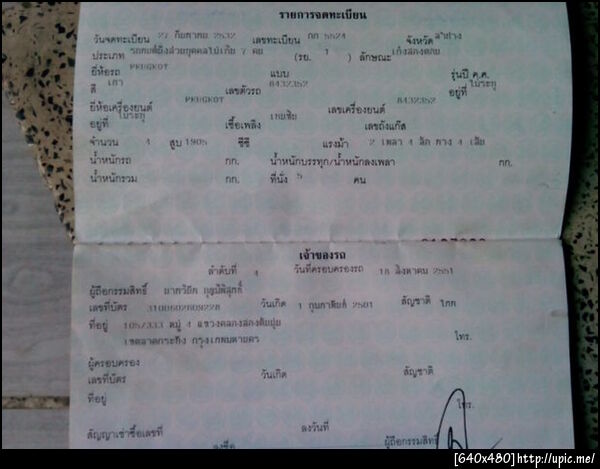 รายการจดทะเบียน
วันจดทะเบียน 27 กันยายน 2532 เลขทะเบียน กก 5524 จังหวัด ลำปาง
ประเภท รถยนต์นั่งส่วนบุคคลไม่เกิน 7 คน (รย. 1 ) ลักษณะ เก๋งสองตอน
ยี่ห้อรถ PEUGEOT แบบ รุ่นปี ค.ศ.
สี เทา เลขตัวรถ 8432352 อยู่ที่ ไม่ระบุ
ยี่ห้อเครื่องยนต์ PEUGEOT เลขเครื่องยนต์ 8432352
อยู่ที่ ไม่ระบุ เชื้อเพลิง เบนซิน เลขถังแก๊ส
จำนวน 4 สูบ 1905 ซีซี แรงม้า 2 เพลา 4 ล้อ ยาง 4 เส้น
น้ำหนักรถ กก. น้ำหนักบรรทุก/น้ำหนักลงเพลา กก.
น้ำหนักรวม กก. ที่นั่ง 5 คน
เจ้าของรถ
ลำดับที่ 4 วันที่ครอบครองรถ 18 สิงหาคม 2551
ผู้ถือกรรมสิทธิ์
เลขที่บัตร วันเกิด 1 กุมภาพันธ์ 2501 สัญชาติ ไทย
ที่อยู่ 105/333 หมู่ 4 แขวงคลองสองต้นนุ่น
เขตลาดกระบัง กรุงเทพมหานคร โทร.
ผู้ครอบครอง
เลขที่บัตร วันเกิด สัญชาติ
ที่อยู่
โทร.
สัญญาเช่าซื้อเลขที่ ลงวันที่
ลงชื่อ ผู้ถือกรรมสิทธิ์
[640x480]http://upic.me/